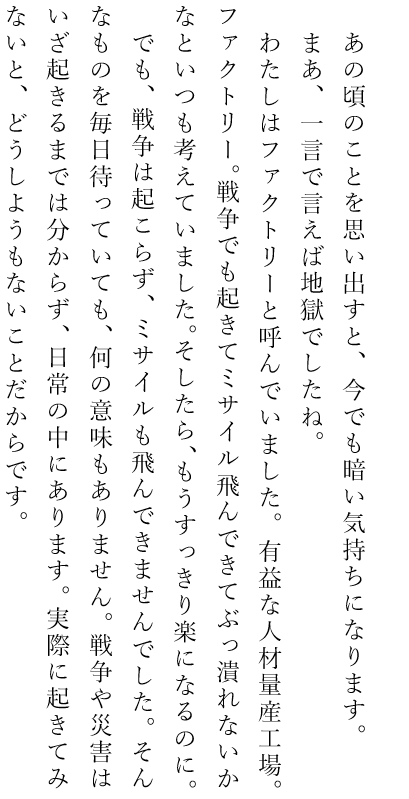 あの頃のことを思い出すと、今でも暗い気持ちになります。
まあ、一言で言えば地獄でしたね。
わたしはファクトリーと呼んでいました。有益な人材量産工場。
ファクトリー。戦争でも起きてミサイル飛んできてぶっ潰れないか
なといつも考えていました。そしたら、もうすっきり楽になるのに。
でも、戦争は起こらず、ミサイルも飛んできませんでした。そん
なものを毎日待っていても、何の意味もありません。戦争や災害は
いざ起きるまでは分からず、日常の中にあります。実際に起きてみ
ないと、どうしようもないことだからです。